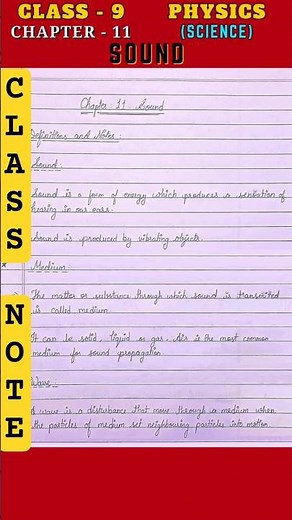 CLASS - 9 PHYSICS
CHAPTER - 11 (SCIENCE)
SOUND
CLASS NOTE
Chapter 11 : Sound
Definitions and Notes :
Sound :
Sound is a form of energy which produces a sensation of
hearing in our ears.
Sound is produced by vibrating objects.
Medium
The matter or substance through which sound is transmitted
is called medium.
It can be solid, liquid or gas. Air is the most common
medium for sound propagation
Wave
A wave is a disturbance that move through a medium when
the particles of medium set neighbouring particles into motion.